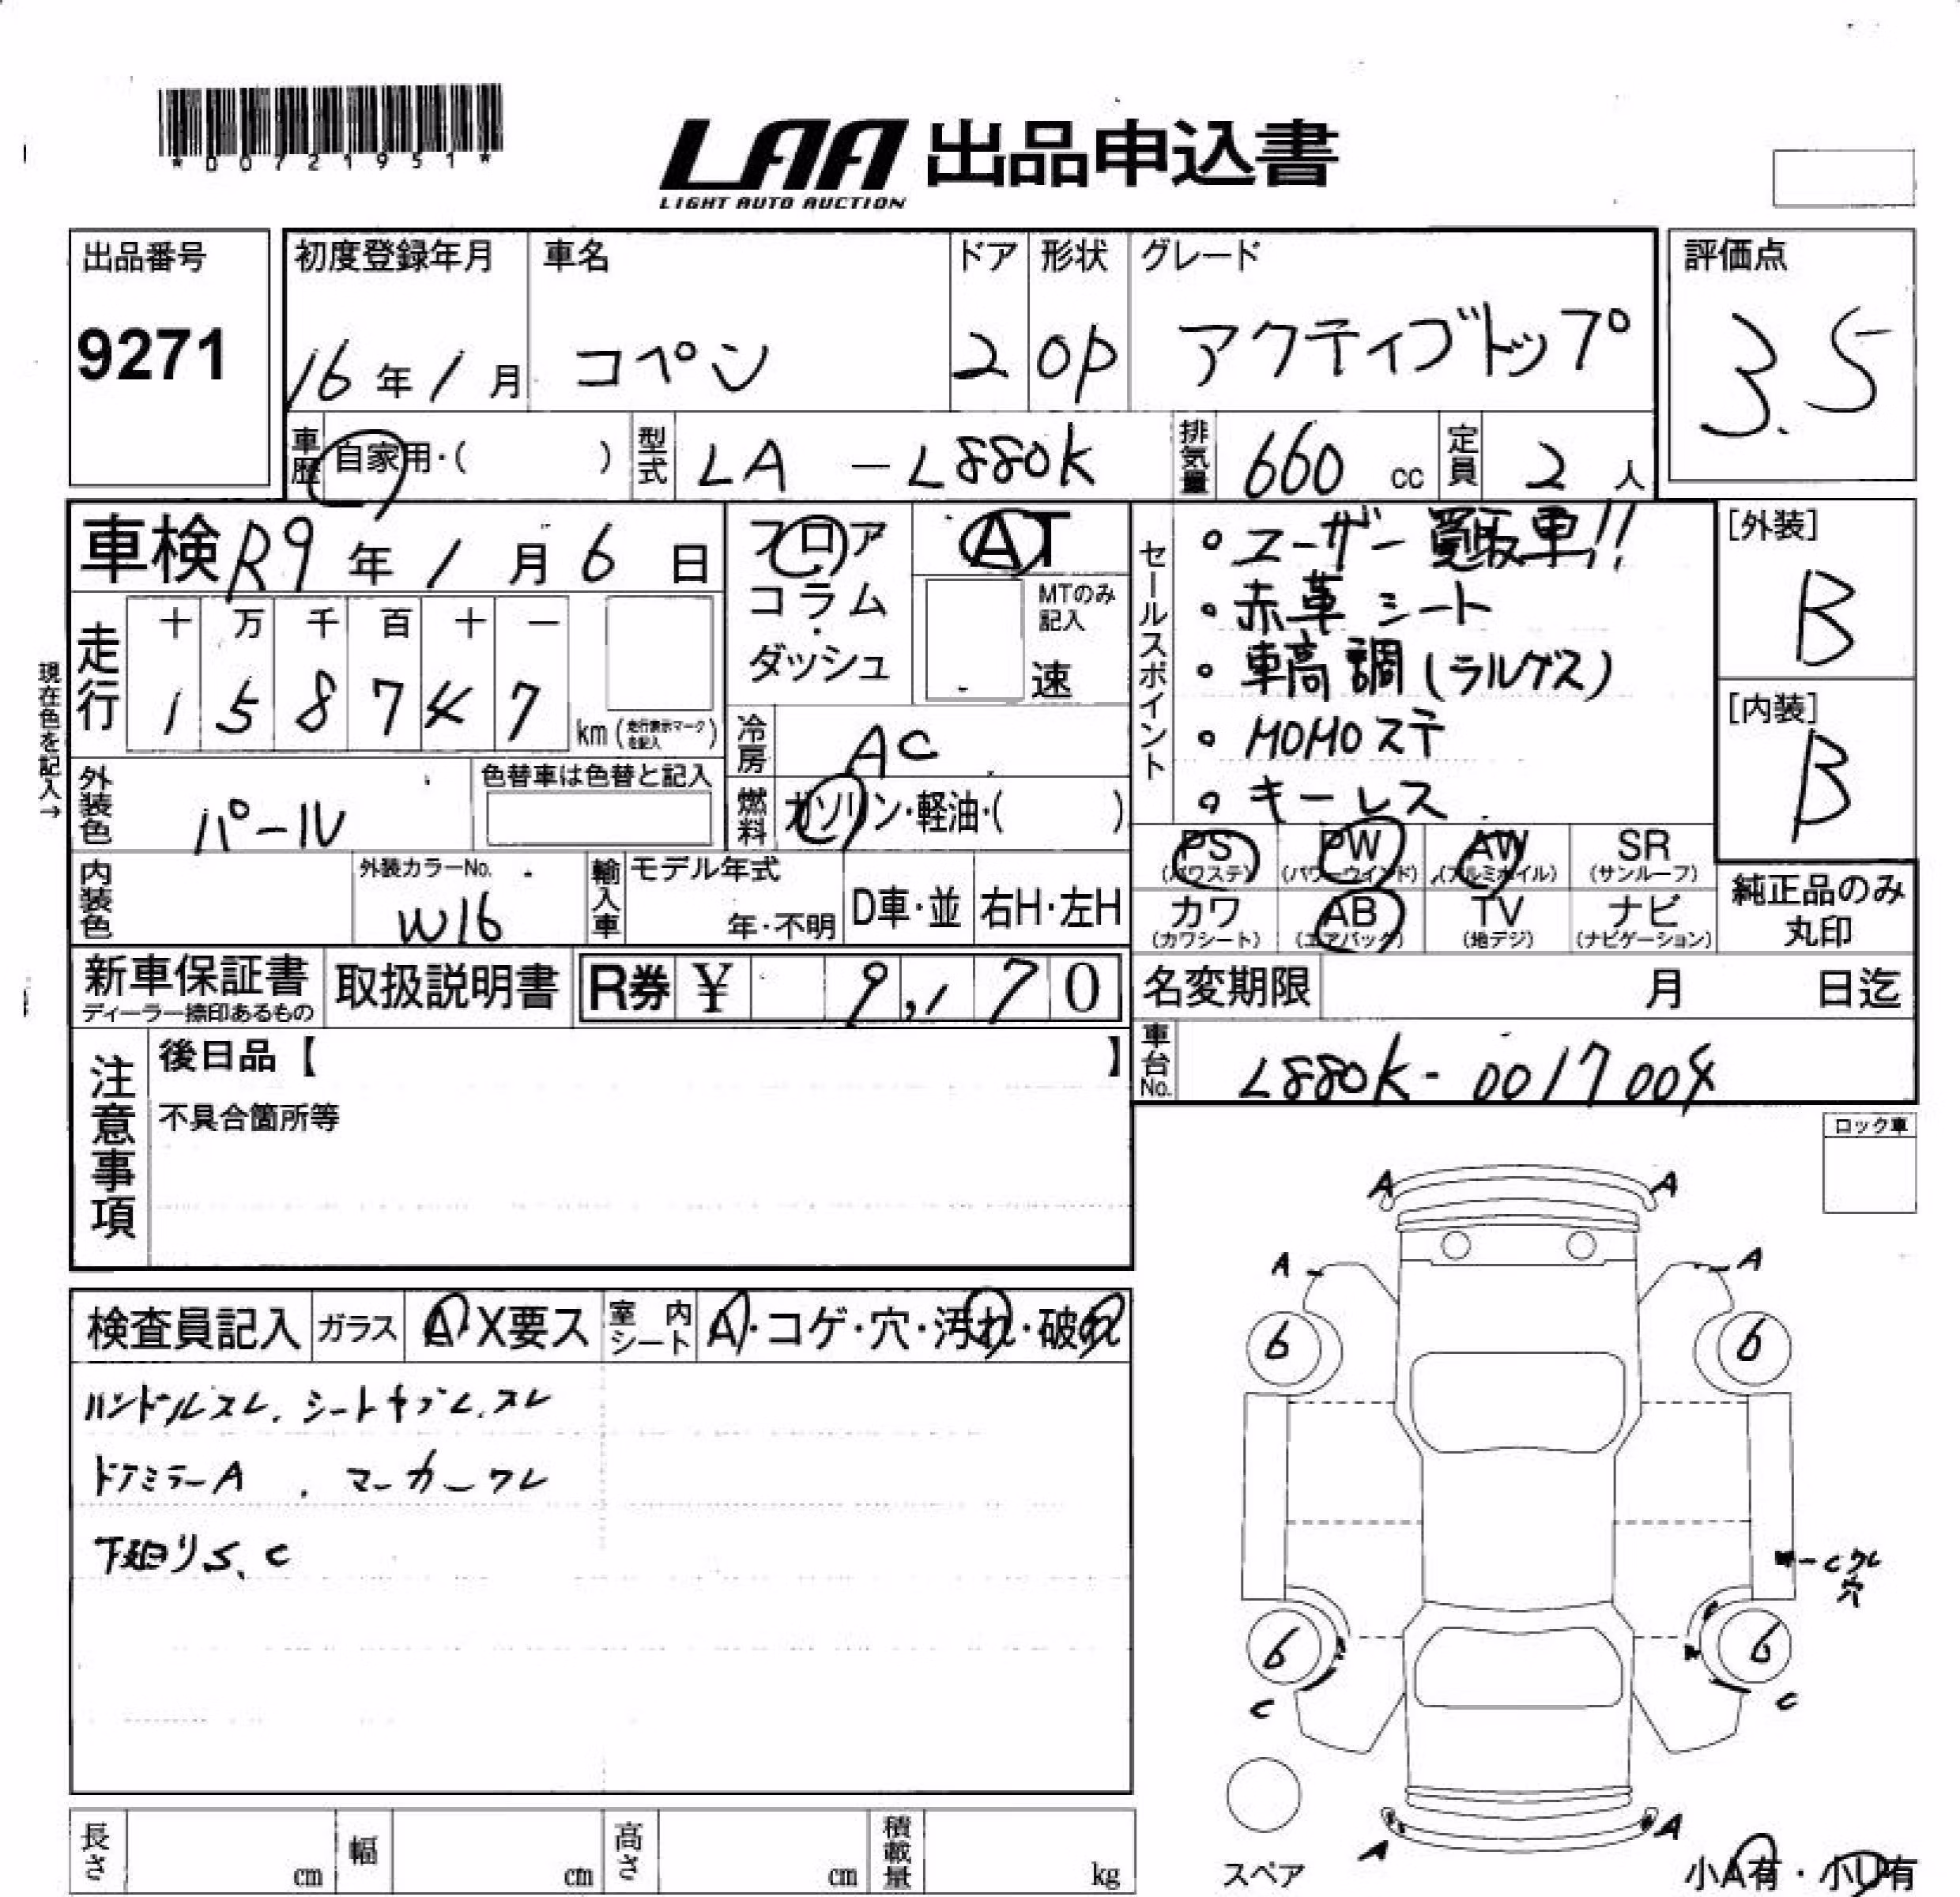 *D0721951*
LAA 出品申込書
LIGHT AUTO AUCTION
出品番号
9271
初度登録年月
16年1月
車名
コペン
ドア
2
形状
OP
グレード
アクティブトップ
評価点
3.5
車歴
自家用・( )
型式
LA-L880K
排気量
660 cc
定員
2 人
車検 R9年1月6日
フロア
コラム
・
ダッシュ
AT
MTのみ
記入
速
セールスポイント
・ユーザー買取車!!
・赤革シート
・車高調(ラルグス)
・MOMOステ
・キーレス
[外装]
B
[内装]
B
現在色を記入→
走行
十 万 千 百 十 一
1 5 8 7 4 7 km(走行表示マークを記入)
冷房
AC
燃料
ガソリン・軽油・( )
外装色
パール
色替車は色替と記入
内装色
外装カラーNo.
W16
輸入車
モデル年式
年・不明
D車・並
右H・左H
PS
(パワステ)
PW
(パワーウインド)
AW
(アルミホイル)
SR
(サンルーフ)
カワ
(カワシート)
AB
(エアバック)
TV
(地デジ)
ナビ
(ナビゲーション)
純正品のみ
丸印
新車保証書
ディーラー捺印あるもの
取扱説明書
R券 ¥ 9,170
名変期限 月 日迄
車台No.
L880K-0017004
注意事項
後日品【 】
不具合箇所等
ロック車
検査員記入
ガラス
A・X要ス
室内シート
A・コゲ・穴・汚れ・破れ
ハンドルスレ、シートヤブレ、スレ
ドアミラーA、マーカーワレ
下廻りS、C
A A
A A
6 6
C ワレ
穴
6 6
C C
A A
スペア
小A有・小U有
長さ cm
幅 cm
高さ cm
積載量 kg